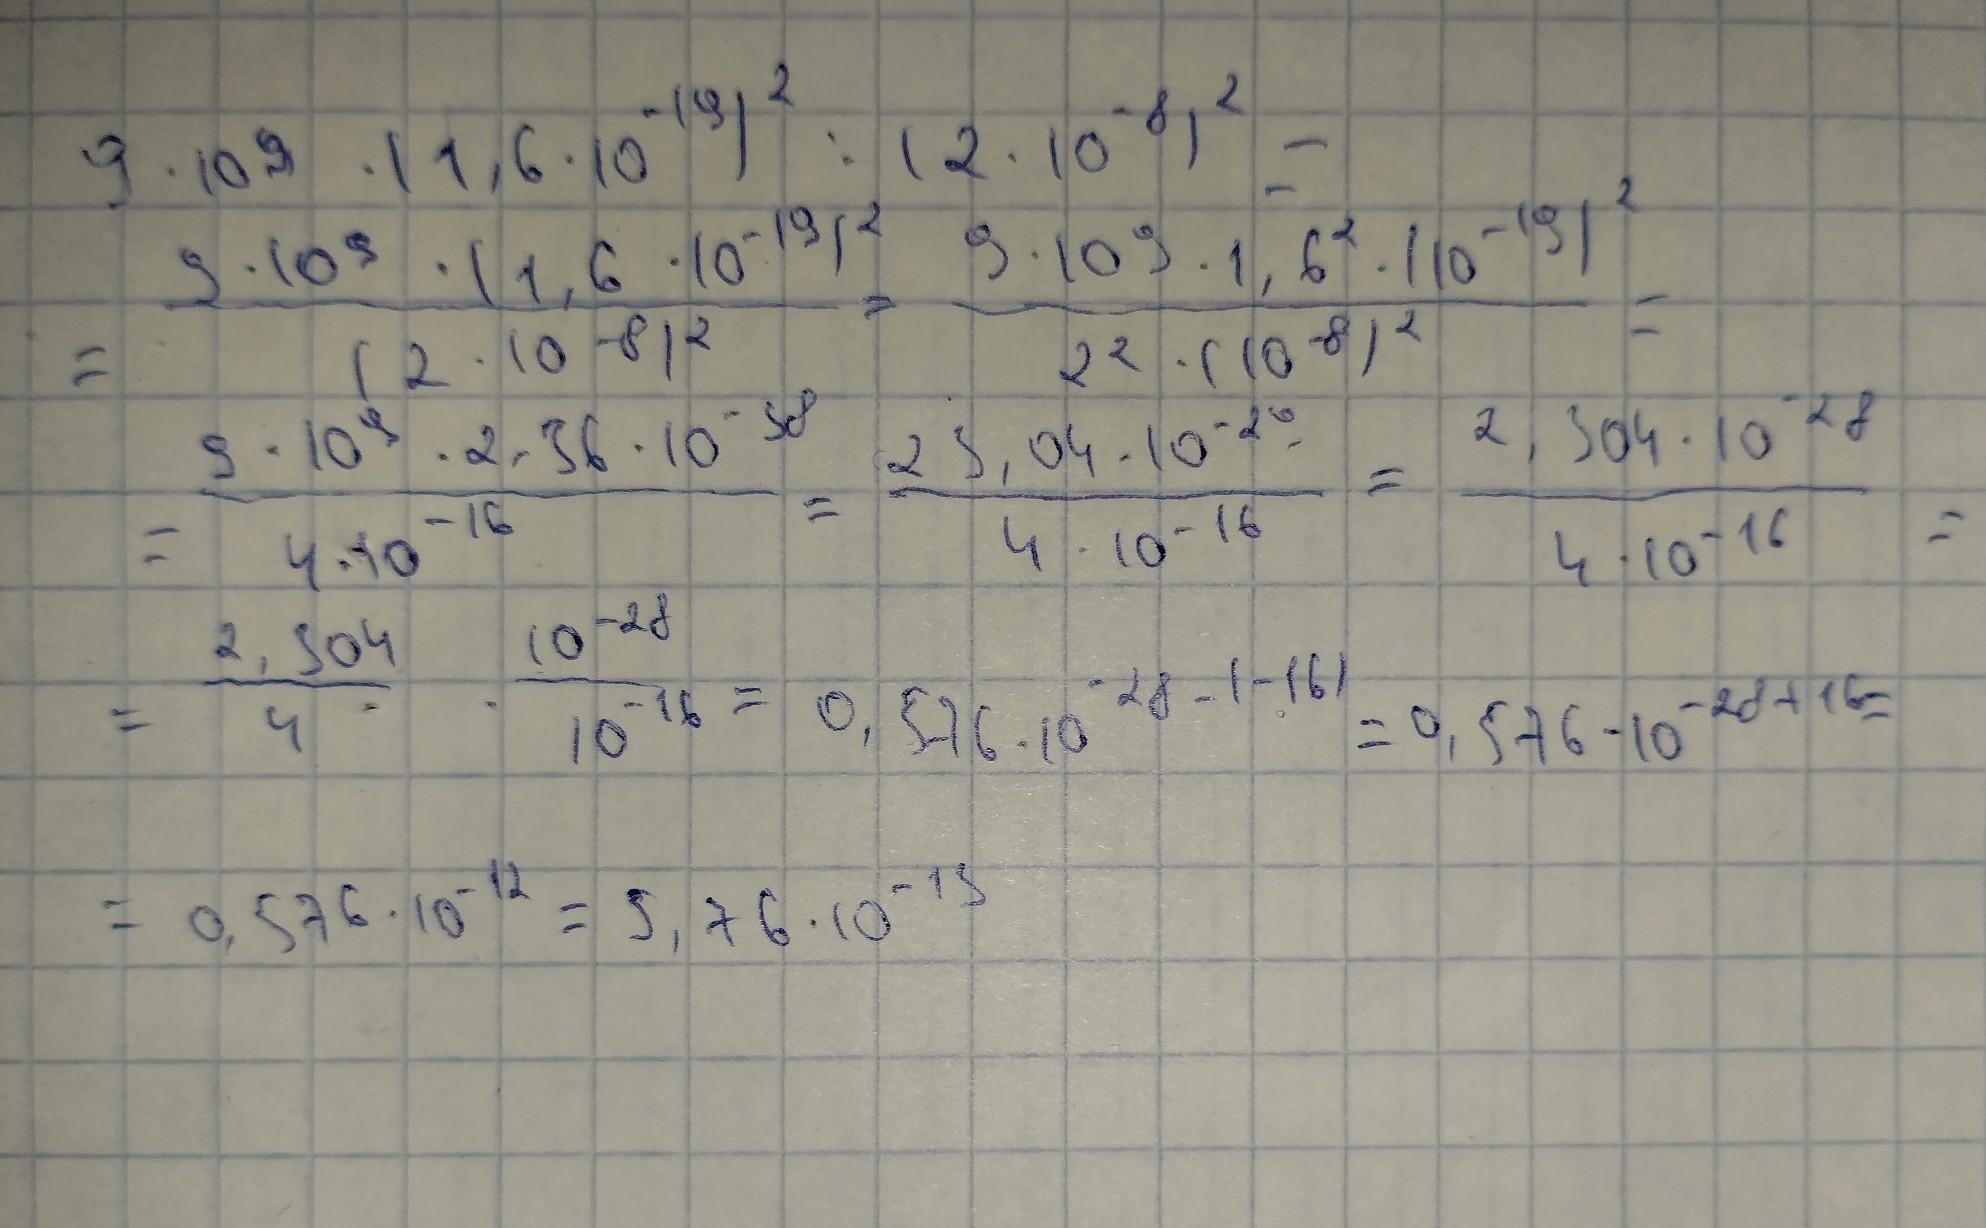 9 · 10⁹ · (1,6 · 10⁻¹⁹)² : (2 · 10⁻⁸)² =
= 9 · 10⁹ · (1,6 · 10⁻¹⁹)² / (2 · 10⁻⁸)² = 9 · 10⁹ · 1,6² · (10⁻¹⁹)² / 2² · (10⁻⁸)² =
= 9 · 10⁹ · 2,56 · 10⁻³⁸ / 4 · 10⁻¹⁶ = 23,04 · 10⁻²⁹ / 4 · 10⁻¹⁶ = 2,304 · 10⁻²⁸ / 4 · 10⁻¹⁶ =
= 2,304 / 4 · 10⁻²⁸ / 10⁻¹⁶ = 0,576 · 10⁻²⁸⁻⁽⁻¹⁶⁾ = 0,576 · 10⁻²⁸⁺¹⁶ =
= 0,576 · 10⁻¹² = 5,76 · 10⁻¹³